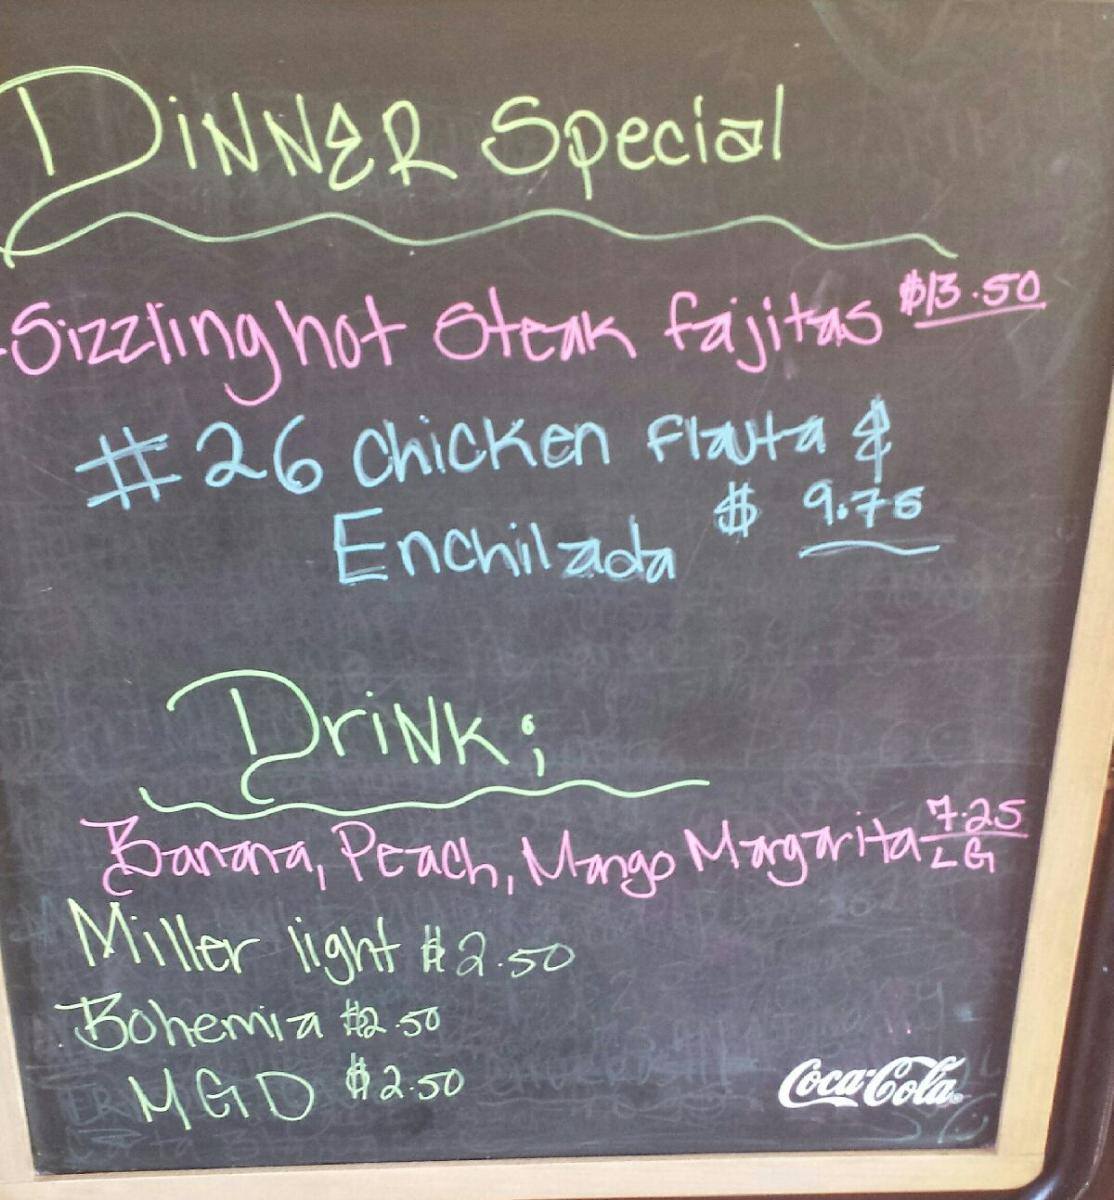 DINNER Special
Sizzling hot Steak fajitas $13.50
#26 Chicken Flauta &
Enchilada $ 9.75
Drink;
Banana, Peach, Mango Margarita 7.25
LG
Miller light $2.50
Bohemia $2.50
MGD $2.50
Coca-Cola